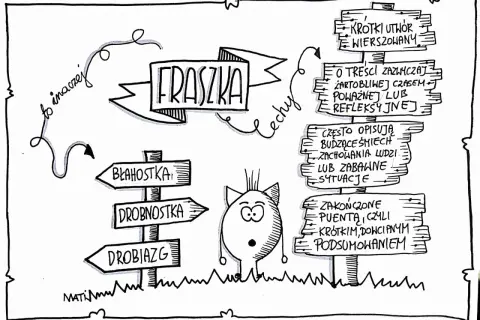 FRASZKA
to inaczej
BŁAHOSTKA,
DROBNOSTKA
DROBIAZG
Cechy
KRÓTKI UTWÓR
WIERSZOWANY
O TREŚCI ZAZWYCZAJ
ŻARTOBLIWEJ CZASEM
POWAŻNEJ LUB
REFLEKSYJNEJ
CZĘSTO OPISUJĄ
BUDZĄCE ŚMIECH
ZACHOWANIA LUDZI
LUB ZABAWNE
SYTUACJE
ZAKOŃCZONE
PUENTĄ, CZYLI
KRÓTKIM, DOWCIPNYM
PODSUMOWANIEM
MATI